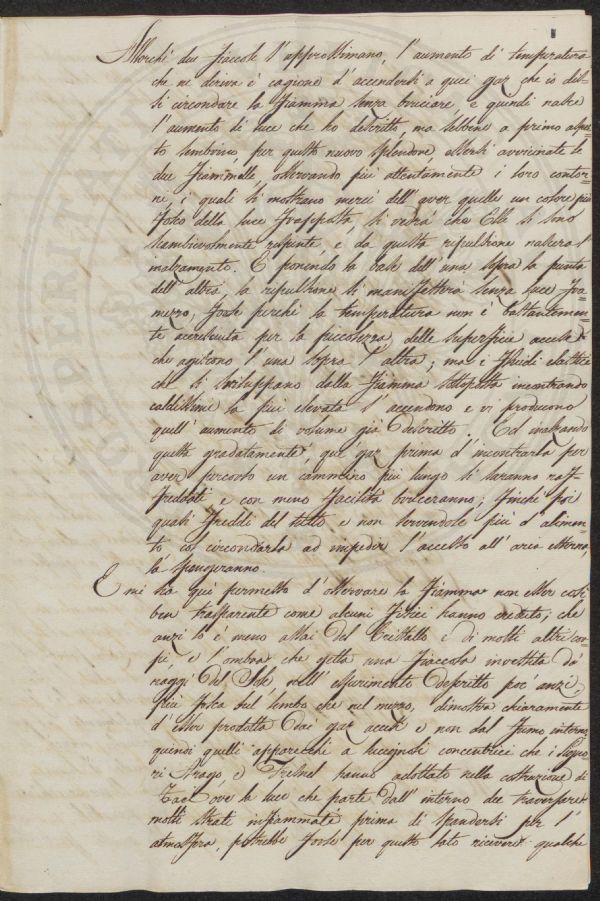 Allorchè due fiaccole s'approssimano, l'aumento di temperatura
che ne deriva è cagione d'accendersi a quei gaz che io dis-
si circondare la fiamma senza bruciare, e quindi nasce
l'aumento di luce che ho descritto, ma sebbene a primo aspet-
to sembrino, per questo nuovo splendore essersi avvicinate le
due fiammelle, osservando più attentamente i loro contor-
ni, i quali si mostrano mercè dell'aver quelle un colore più
fosco della luce frapposta, si vedrà che Elle si sono
scambievolmente rispinte, e da questa ripulsione nascera l'
inalzamento. E ponendo la base dell'una sopra la punta
dell'altra, la ripulsione si manifesterà senza luce fra-
mezzo, forse perchè la temperatura non è bastantemen-
te accresciuta per la piccolezza delle superficie accese
che agiscono l'una sopra l'altra; ma i fluidi elastici
che si sviluppano dalla fiamma sottoposta incontrando
caldissimi la più elevata s'accendono e vi producono
quell'aumento di volume già descritto. Ed inalzando
questa gradatamente, quei gaz prima d'incontrarla per
aver percorso un cammino più lungo si saranno raf-
freddati e con meno facilità bruceranno; finchè poi
quasi freddi del tutto e non servendole più d'alimen-
to, col circondarla ad impedir l'accesso all'aria esterna,
la spengeranno.
E mi sia qui permesso d'osservare la fiamma non esser così
ben trasparente come alcuni Fisici hanno creduto; che
anzi lo è meno assai del Cristallo e di molti altri cor-
pi, e l'ombra che getta una fiaccola investita da'
raggi del Sole, nell'esperimento descritto poc'anzi,
più fosca sul lembo che nel mezzo, dimostra chiaramente
d'esser prodotta dai gaz accesi e non dal fumo interno
quindi quelli apparecchi a lucignoli concentrici che i Signo-
ri Arago, e Fresnel hanno adottato nella costruzione di
Fari ove la luce che parte dall'interno dee traversare
molti strati infiammati prima di spandersi per l'
atmosfera, potrebbe forse per questo lato ricevere qualche